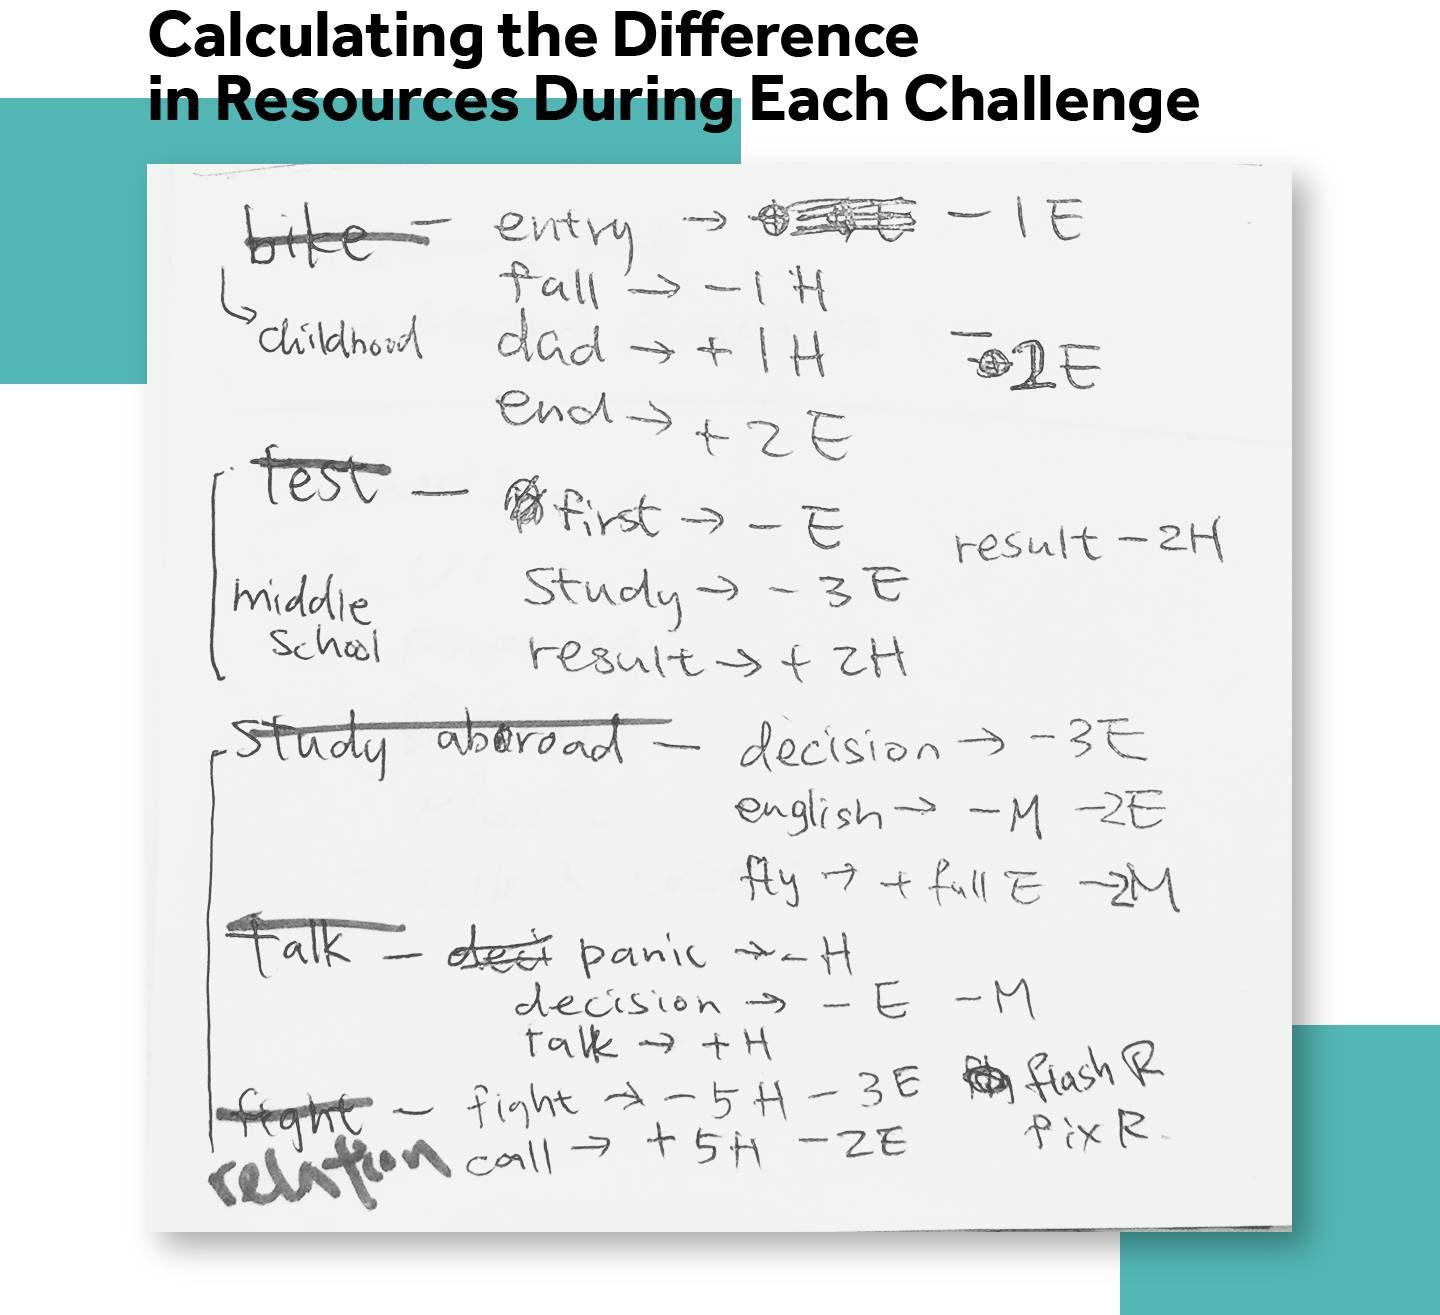 Calculating the Difference
in Resources During Each Challenge
bike – entry → – 1 E
fall → – 1 H
childhood dad → + 1 H – 1E
end → + 2 E
test – first → – E
result – 2H
study → – 3 E
middle
school
result → + 2H
study aboroad – decision → – 3E
english → – M – 2E
fly → + full E – 2M
talk – panic → – H
decision → – E – M
talk → + H
fight – fight → – 5 H – 3E flash R
relation call → + 5H – 2E fix R